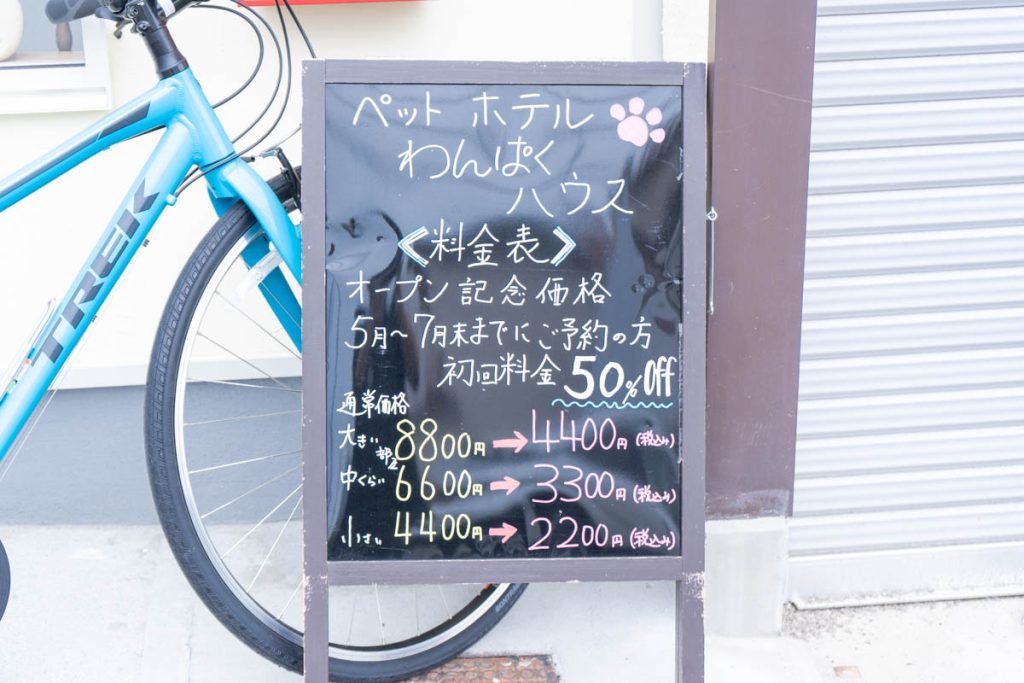 ペット ホテル
わんぱく
ハウス
《料金表》
オープン記念価格
5月〜7月末までにご予約の方
初回料金 50%Off
通常価格
大きい部屋 8800円→4400円(税込み)
中くらい 6600円→3300円(税込み)
小さい 4400円→2200円(税込み)
TREK